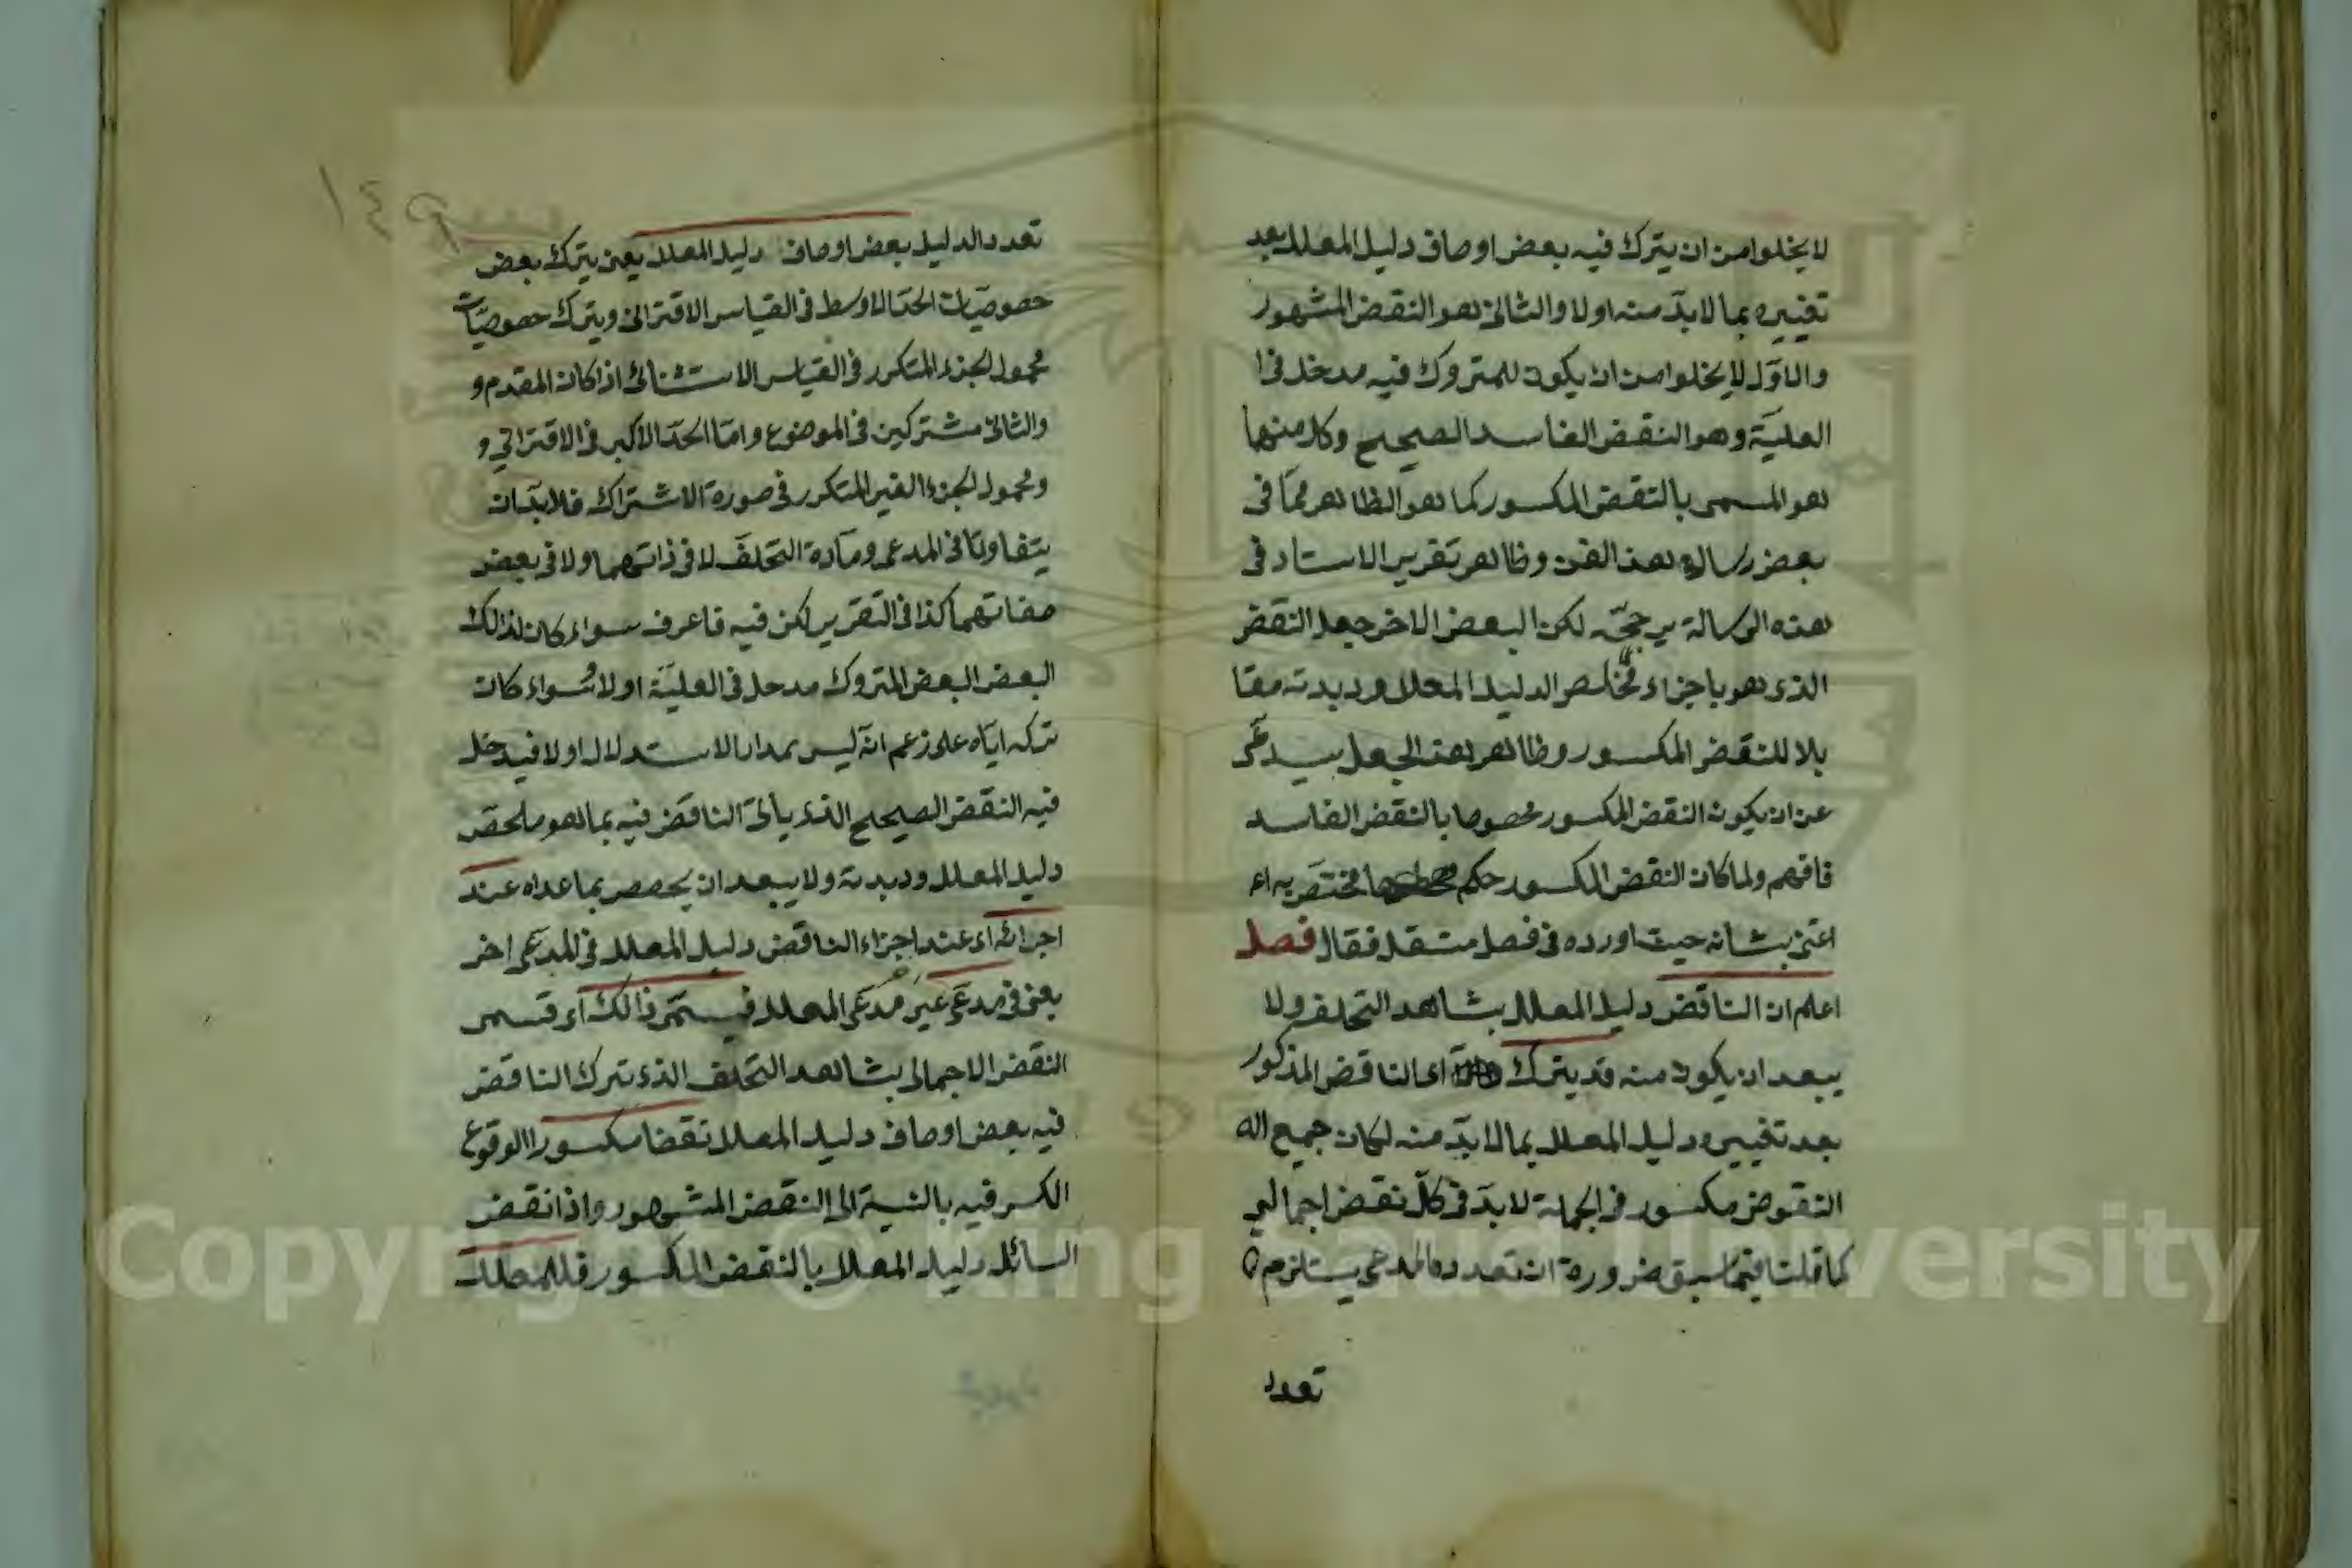 لا يخلوا من ان يترك فيه بعض اوصاف دليل المعلل بعد
تغييره بما لا بدّ منه اولا والثاني هو النقض المشهور
والاوّل لا يخلوا من ان يكون للمتروك فيه مدخل في ا
العليّة وهو النقض الفاسد الصحيح وكل منهما
هو المسمى بالنقض المكسور كما هو الظاهر ممّا في
بعض رسالة هذا الفن وظاهر تقرير الاستاد في
هذه الرسالة يرجحّه لكن البعض الاخر جعل النقض
الذى هو باجزاء الدليل المعلل وديدته مقا
بلا للنقض المكسور وظاهر هذا الجعل
عن ان يكون النقض المكسور مخصوصا بالنقض الفاسد
فافهم ولما كان النقض المكسور حكم مختصّ به اع
اعتنى بشانه حيث اورده في فصل مستقل فقال فصل
اعلم ان الناقض دليل المعلل بشاهد التخلف ولا
يبعد ان يكون منه قد يترك اى الناقض المذكور
بعد تغييره دليل المعلل بما لا بدّ منه لكان جميع اله
النقوض مكسور في الجملة لا بدّ في كلّ نقض اجمالي
كما قلنا فيما سبق ضرورة ان تعدد المدعى يستلزم
تعدد
١٤٩
تعدد الدليل بعض اوصاف دليل المعلل يعنى يترك بعض
خصوصيّات الحدّ الاوسط في القياس الاقترانى ويترك خصوصيّات
محمول الجزء المتكرر في القياس الاستثنائى اذا كان المقدم و
والثانى مشتركين في الموضوع وامّا الحدّ الاكبر في الاقتراني و
ومحمول الجزء الغير المتكرر في صورة الاشتراك فلا بدّ ان
يتفاوتا في المدعى ومادة التخلّف لا في ذاتهما ولا في بعض
صفاتهما كذا في التقرير لكن فيه فاعرف سواء كان لذالك
البعض البعض المتروك مدخل في العليّة اولا سواء كان
تركه ايّاه على زعم انّه ليس بمدار الاستدلال اولا فيدخل
فيه النقض الصحيح الذى يأتى الناقض فيه بما هو ملخّص
دليل المعلل وديدته ولا يبعد ان يخصص بما عداه عند
اجرائه اى عند اجزاء الناقض دليل المعلل في المدعى اخر
يعنى في مدعى غير مدعى المعلل فيسمّى ذالك اى قسمى
النقض الاجمالى بشاهد التخلف الذى يترك الناقض
فيه بعض اوصاف دليل المعلل نقضا مكسورا لوقوع
الكسر فيه بالنسبة الى النقض المشهور واذا نقض
السائل دليل المعلل بالنقض المكسور فللمعلل
Copyright © King Saud University